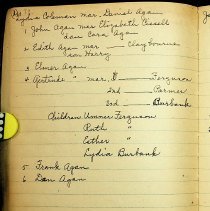 Lydia Coleman mar. Daniel Agan
1 John Agan mar Elizabeth Cissell
dau Cora Agan
2 Edith Agan mar — Claybourne
son Harry
3 Elmer Agan
4 Gertrude " mar. — Ferguson
2nd — Parmer
3rd — Burbank
Children Homer Ferguson
Ruth "
Esther "
Lydia Burbank
5 Frank Agan
6 Dan Agan